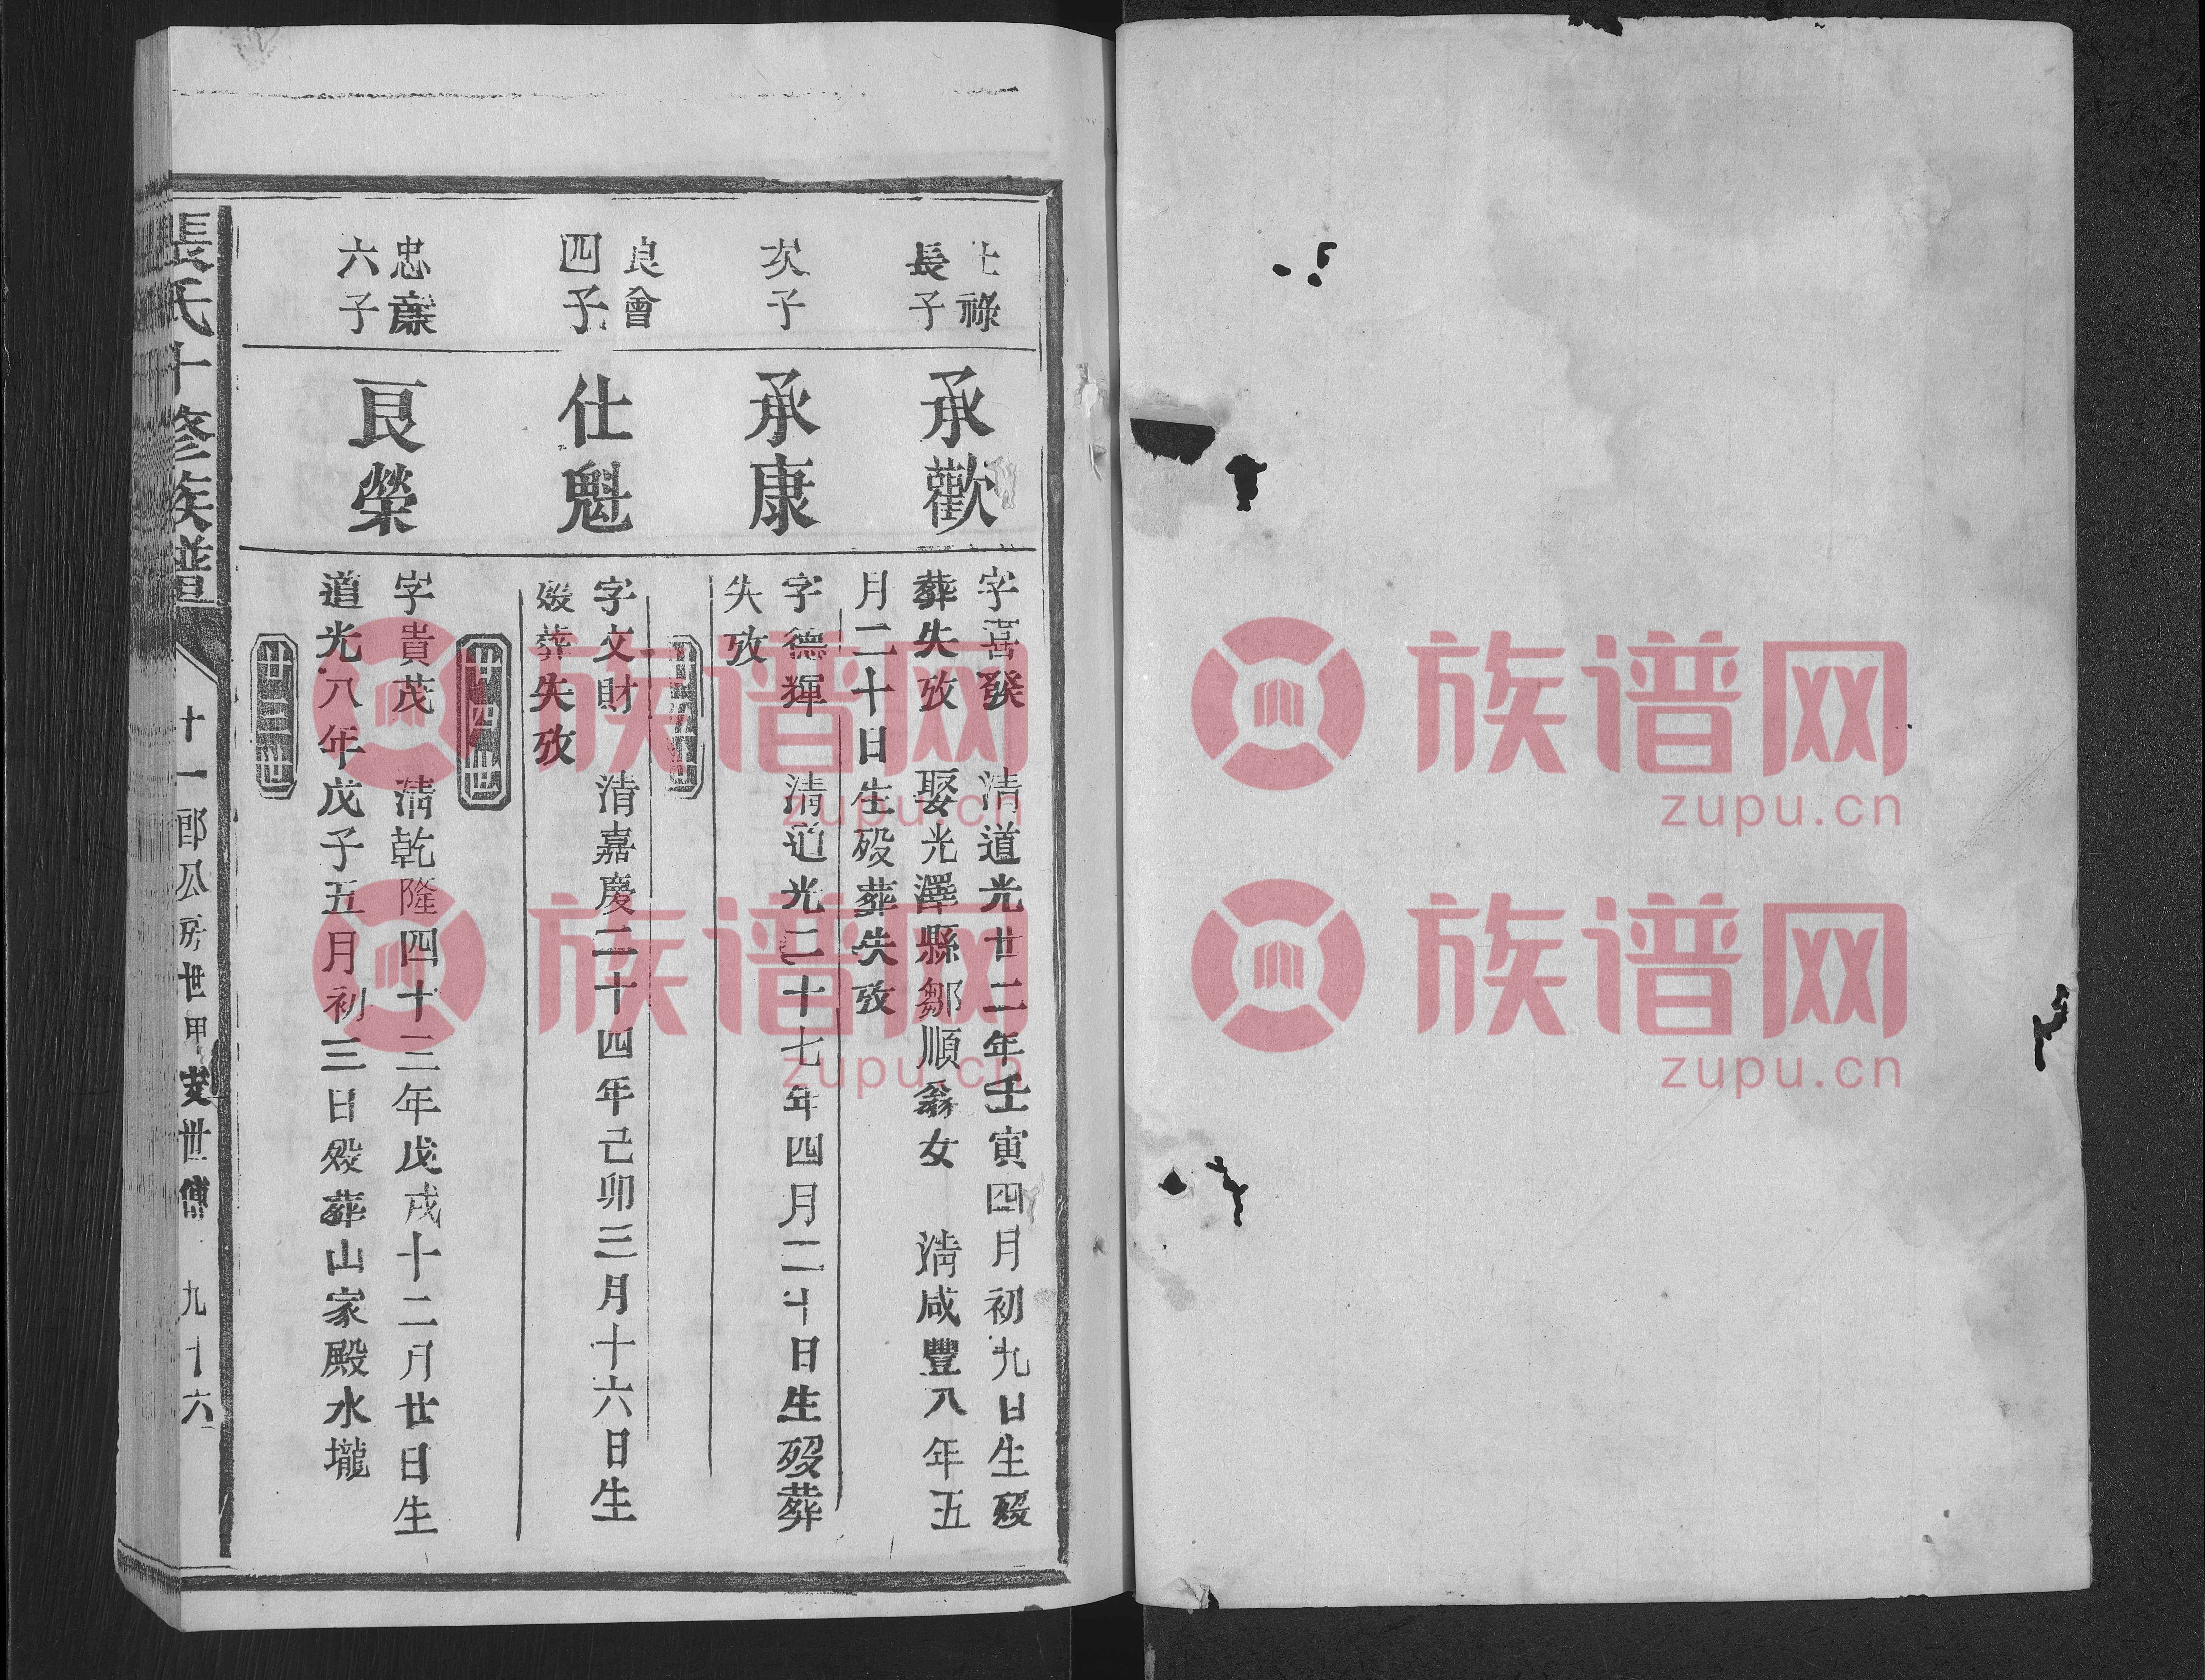 仕祿
長子
承歡
字喜發　清道光廿二年壬寅四月初九日生歿
葬失攷　娶光澤縣鄒順翁女　清咸豐八年五
月二十日生歿葬失攷
次子
承康
字德輝　清道光二十七年四月二十日生歿葬
失攷
廿五世
良會
四子
仕魁
字文財　清嘉慶二十四年己卯三月十六日生
歿葬失攷
廿四世
忠
六子
良榮
字貴茂　清乾隆四十三年戊戌十二月廿日生
道光八年戊子五月初三日歿葬山家殿水壠
廿三世
張氏十修族譜
十一郎公房世甲支世傳　九十六
族谱网
zupu.cn
族谱网
zupu.cn
族谱网
zupu.cn
族谱网
zupu.cn